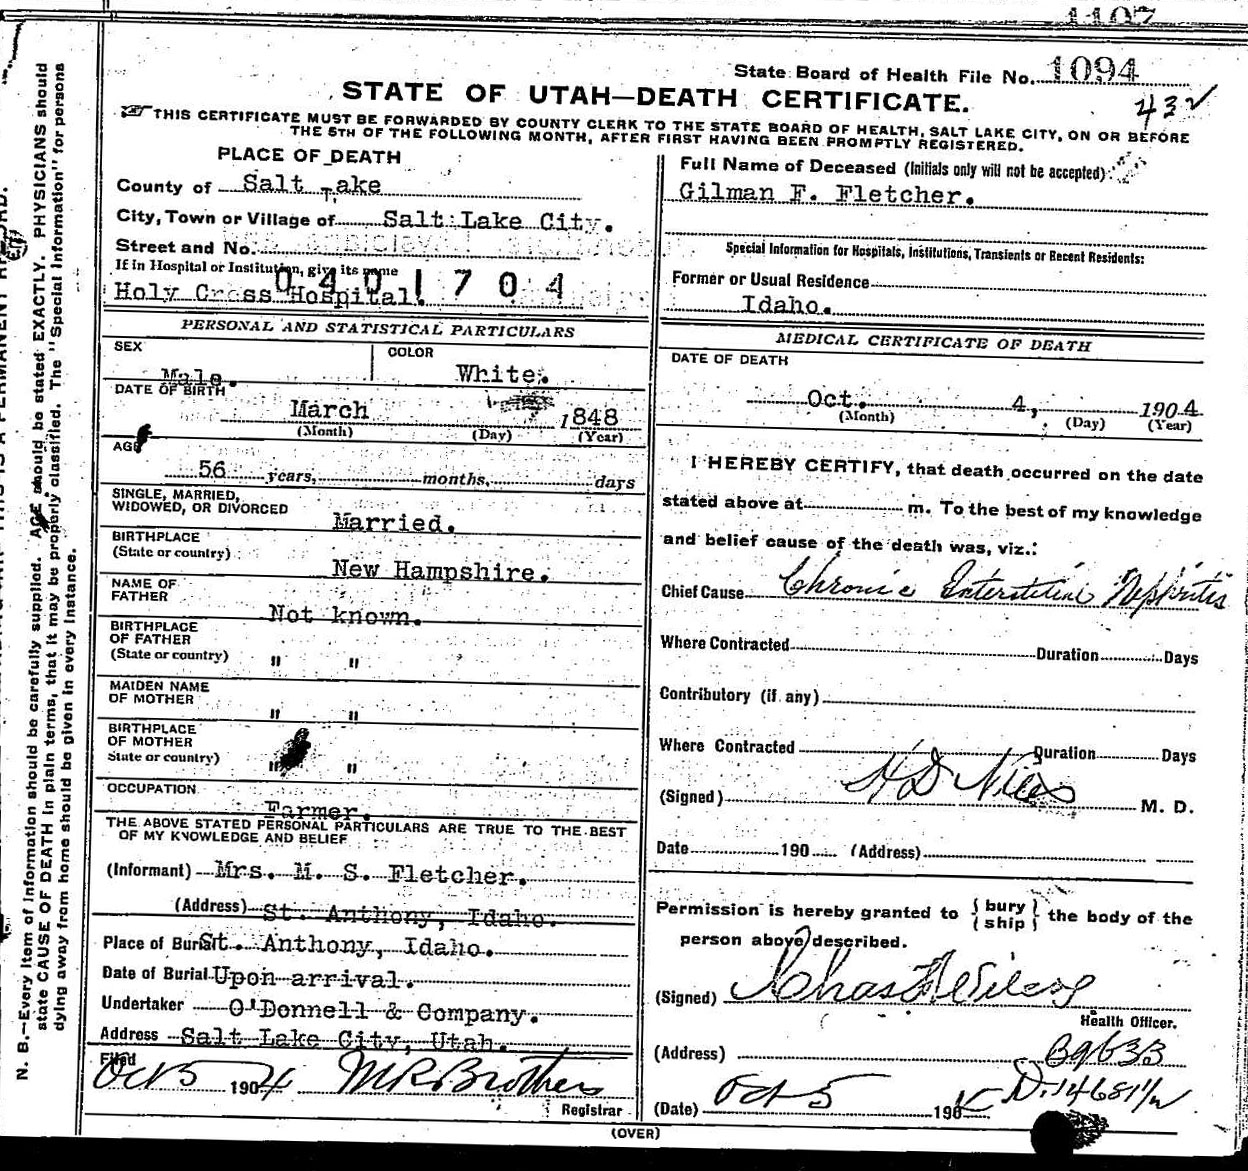 1107
State Board of Health File No. 1094
STATE OF UTAH—DEATH CERTIFICATE.
432
THIS CERTIFICATE MUST BE FORWARDED BY COUNTY CLERK TO THE STATE BOARD OF HEALTH, SALT LAKE CITY, ON OR BEFORE
THE 5TH OF THE FOLLOWING MONTH, AFTER FIRST HAVING BEEN PROMPTLY REGISTERED.
PLACE OF DEATH
County of Salt Lake
City, Town or Village of Salt Lake City.
Street and No.
If in Hospital or Institution, give its name
0401704
Holy Cross Hospital.
PERSONAL AND STATISTICAL PARTICULARS
SEX
Male.
COLOR
White.
DATE OF BIRTH
March 1848
(Month) (Day) (Year)
AGE
56 years, months, days
SINGLE, MARRIED,
WIDOWED, OR DIVORCED
Married.
BIRTHPLACE
(State or country)
New Hampshire.
NAME OF
FATHER
Not known.
BIRTHPLACE
OF FATHER
(State or country) " "
MAIDEN NAME
OF MOTHER
" "
BIRTHPLACE
OF MOTHER
State or country) " "
OCCUPATION
Farmer.
THE ABOVE STATED PERSONAL PARTICULARS ARE TRUE TO THE BEST
OF MY KNOWLEDGE AND BELIEF
(Informant) Mrs. M. S. Fletcher.
(Address) St. Anthony, Idaho.
Place of Burial St. Anthony, Idaho.
Date of Burial Upon arrival.
Undertaker O'Donnell & Company.
Address Salt Lake City, Utah.
Filed
Oct 5 1904 M R Brothers
Registrar
Full Name of Deceased (Initials only will not be accepted)
Gilman F. Fletcher.
Special Information for Hospitals, Institutions, Transients or Recent Residents:
Former or Usual Residence
Idaho.
MEDICAL CERTIFICATE OF DEATH
DATE OF DEATH
Oct. 4, 1904
(Month) (Day) (Year)
I HEREBY CERTIFY, that death occurred on the date
stated above at m. To the best of my knowledge
and belief cause of the death was, viz.:
Chief Cause Chronic Interstitial Nephritis
Where Contracted Duration Days
Contributory (if any)
Where Contracted Duration Days
(Signed) H D Niles M. D.
Date 190 (Address)
Permission is hereby granted to { bury / ship } the body of the
person above described.
(Signed) Chas
Health Officer.
(Address) B9633
D.14681½
(Date) Oct 5 190
(OVER)
N. B.—Every item of information should be carefully supplied. AGE should be stated EXACTLY. PHYSICIANS should
state CAUSE OF DEATH in plain terms, that it may be properly classified. The "Special Information" for persons
dying away from home should be given in every instance.